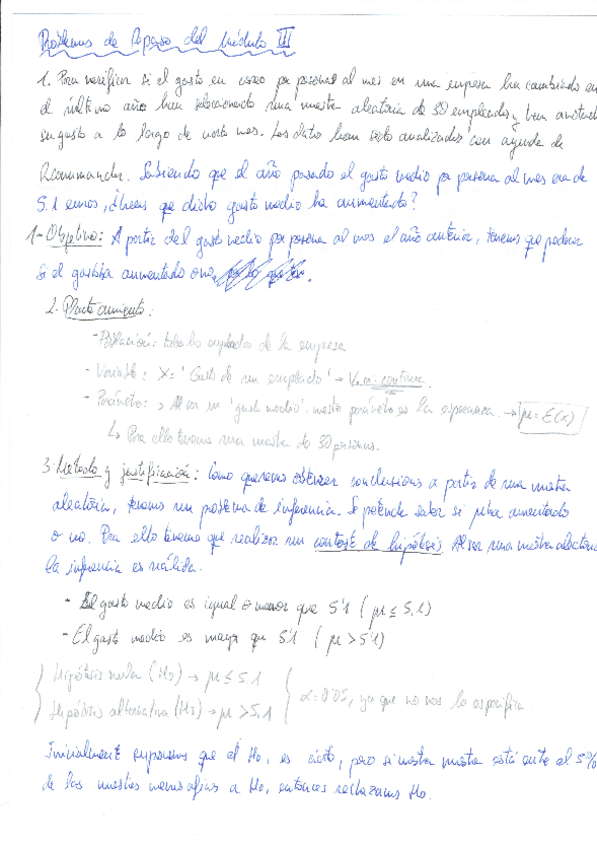 Problemas de Repaso del Módulo III
1. Para verificar si el gasto en correo por persona al mes en una empresa ha cambiado en
el último año han seleccionado una muestra aleatoria de 30 empleados y han anotado
su gasto a lo largo de este mes. Los datos han sido analizados con ayuda de
Rcommander. Sabiendo que el año pasado el gasto medio por persona al mes era de
5.1 euros, ¿crees que dicho gasto medio ha aumentado?
1- Objetivo: A partir del gasto medio por persona al mes el año anterior, tenemos que predecir
si el gasto ha aumentado o no.
2. Planteamiento:
- Población: todos los empleados de la empresa
- Variable: X = 'Gasto de un empleado' → V.a. continua.
- Parámetro: → Al ser un 'gasto medio' nuestro parámetro es la esperanza. → μ = E(x)
↳ Para ello tenemos una muestra de 30 personas.
3. Método y justificación: Como queremos obtener conclusiones a partir de una muestra
aleatoria, tenemos un problema de inferencia. Se pretende saber si ha aumentado
o no. Para ello tenemos que realizar un contraste de hipótesis. Al ser una muestra aleatoria
la inferencia es válida.
- El gasto medio es igual o menor que 5'1 ( μ ≤ 5.1)
- El gasto medio es mayor que 5'1 ( μ > 5'1)
Hipótesis nula (H0) → μ ≤ 5.1
Hipótesis alternativa (H1) → μ > 5.1
α = 0'05, ya que no nos lo especifica.
Inicialmente suponemos que el H0, es cierto, pero si nuestra muestra está entre el 5%
de las muestras menos afines a H0, entonces rechazamos H0.